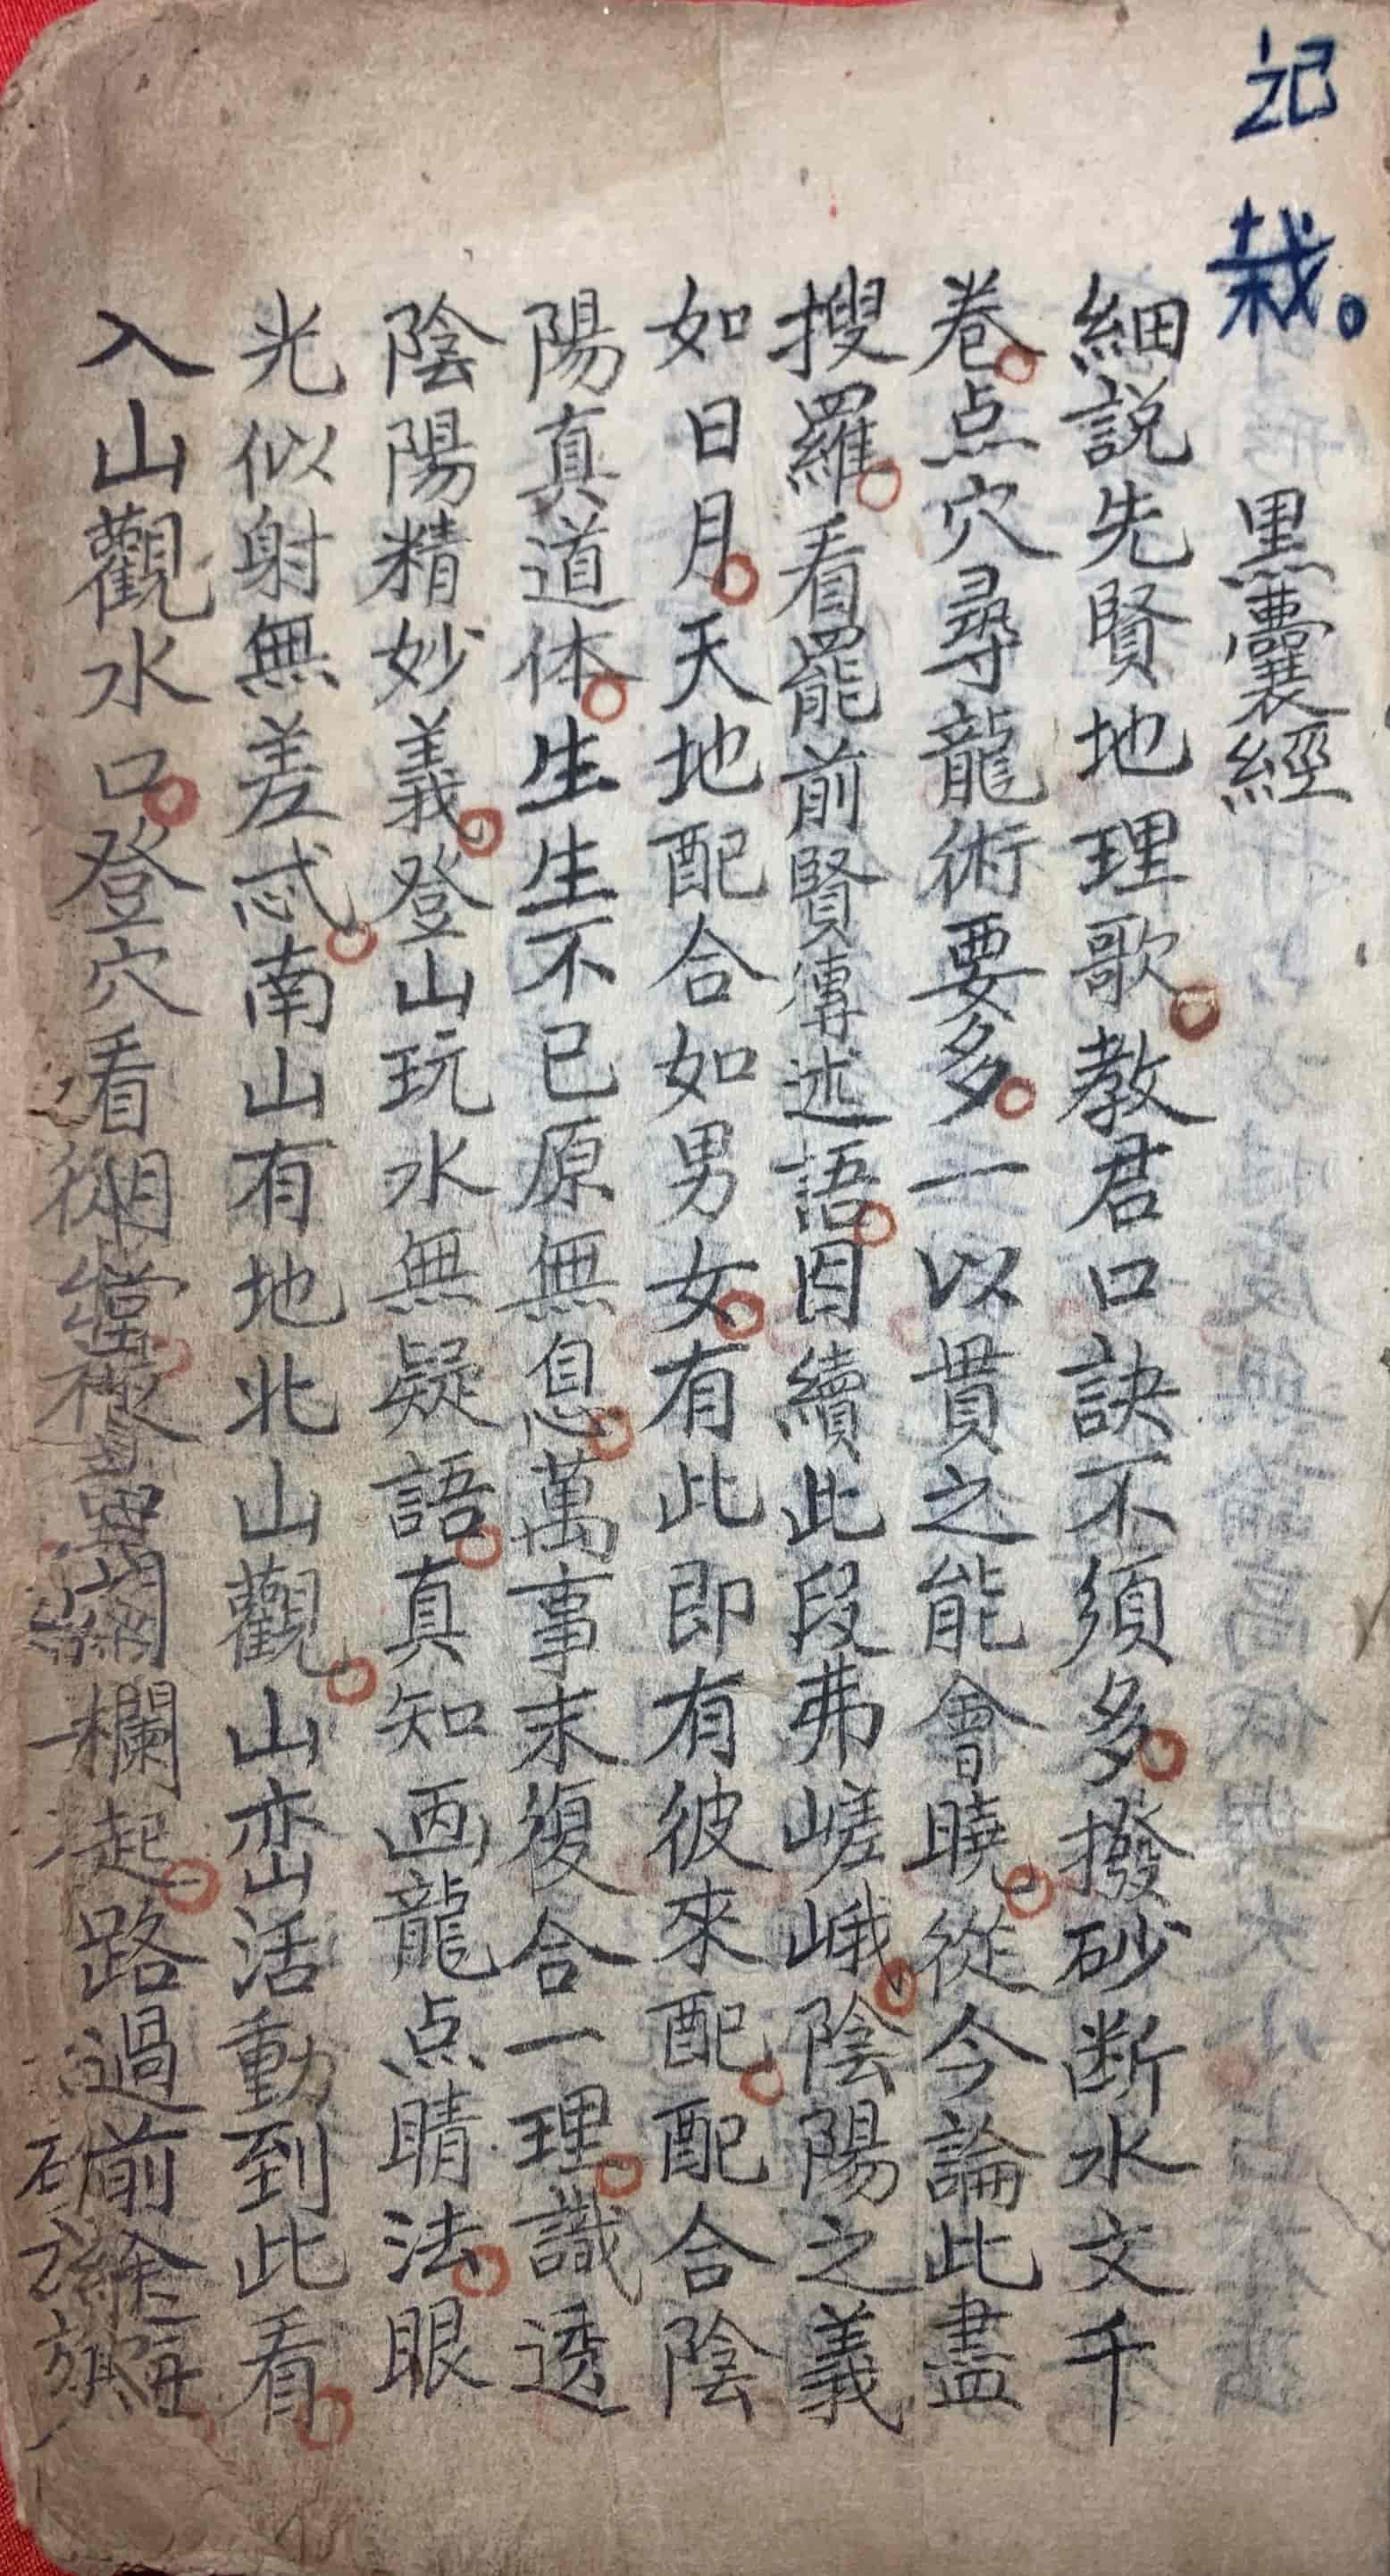 记 栽。
黑囊經
細説先賢地理歌。教君口訣不須多。撥砂断水文千
卷。点穴尋龍術要多。一以貫之能會曉。從今論此盡
搜羅。看罷前賢傳述語。因續此段弗嵯峨。陰陽之義
如日月。天地配合如男女。有此即有彼來配。配合陰
陽真道体。生生不已原無息。萬事末復合一理。識透
陰陽精妙義。登山玩水無疑語。真知画龍点睛法。眼
光似射無差忒。南山有地北山觀。山峦活動到此看。
入山觀水口。登穴看 欄起。路過前